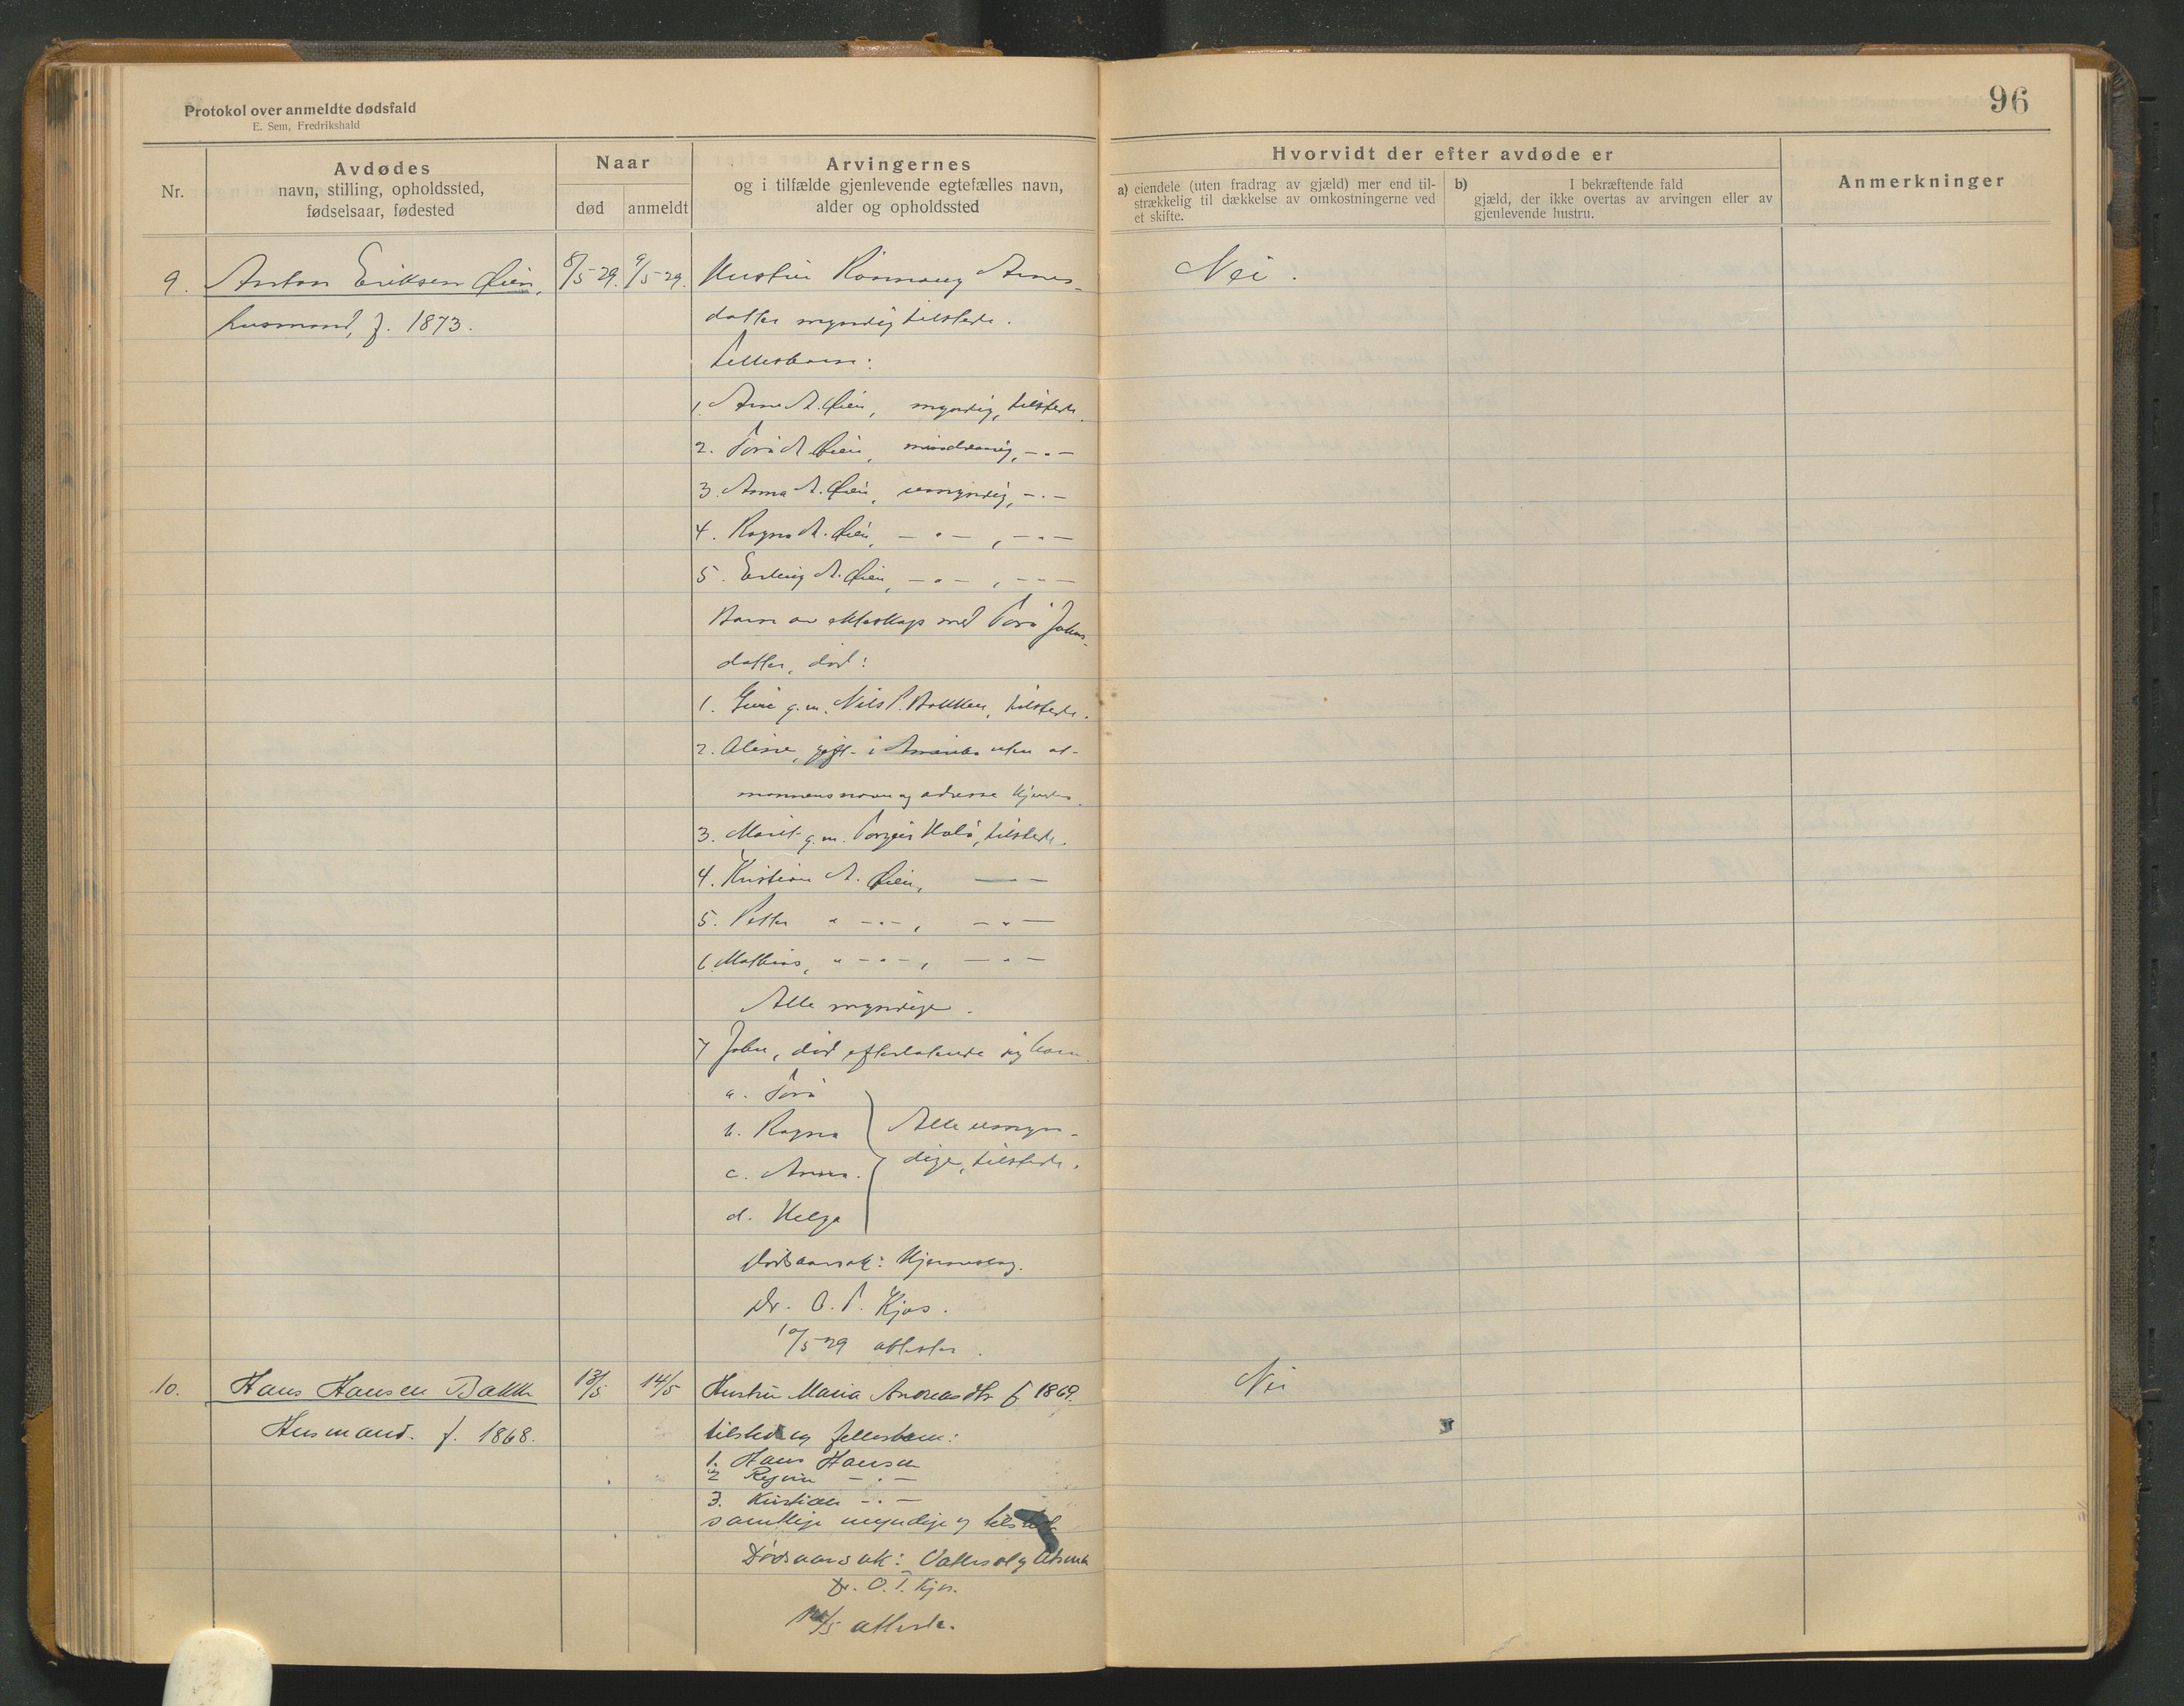 Protokol over anmeldte dødsfald
E. Sem, Fredrikshald
96
Nr.
Avdødes
navn, stilling, opholdssted,
fødselsaar, fødested
Naar
død
anmeldt
Arvingernes
og i tilfælde gjenlevende egtefælles navn,
alder og opholdssted
Hvorvidt der efter avdøde er
a) eiendele (uten fradrag av gjæld) mer end til-
strækkelig til dækkelse av omkostningerne ved
et skifte.
b) I bekræftende fald
gjæld, der ikke overtas av arvingen eller av
gjenlevende hustru.
Anmerkninger
9. Anton Eriksen Øien, 8/5 29. 9/5 29. Hustru Rønnaug Arnes- Nei.
husmand, f. 1873. datter myndig tilstede.
Fellesbarn:
1. Arne A. Øien, myndig, tilstede.
2. Toro A. Øien, mindreaarig, -"-
3. Anna A. Øien, umyndig, -"-
4. Ragna A. Øien, -"-, -"-
5. Erling A. Øien, -"-, -"-
Barn av ekteskap med Toro Johns-
datter, død:
1. Guri g.m. Nils P. Bakken, tilstede.
2. Oline, gift i Amerika uten at
mannens navn og adresse kjendes.
3. Marit g.m. Torgeir Holö, tilstede.
4. Kristian A. Øien, -"-
5. Petter " -"-, -"-
6. Mathias, " -"-, -"-
Alle myndige.
7 John, død efterlatende sig barn.
a. Toro
b. Ragna
c. Anna.
d. Helga
Alle umyn-
dige, tilstede.
Dødsaarsak: Hjerneslag.
Dr. O. T. Kjos.
10/5 29 attester.
10. Hans Hansen Bakke 13/5 14/5 Hustru Maria Andreasdtr f 1869. Nei
Husmand. f. 1868. tilstede og fellesbarn:
1. Hans Hansen
2 -"-
3. Kristian -"-
samtlige myndige og tilstede
Dødsaarsak: og Astma
Dr. O. T. Kjos.
14/5 atteste.